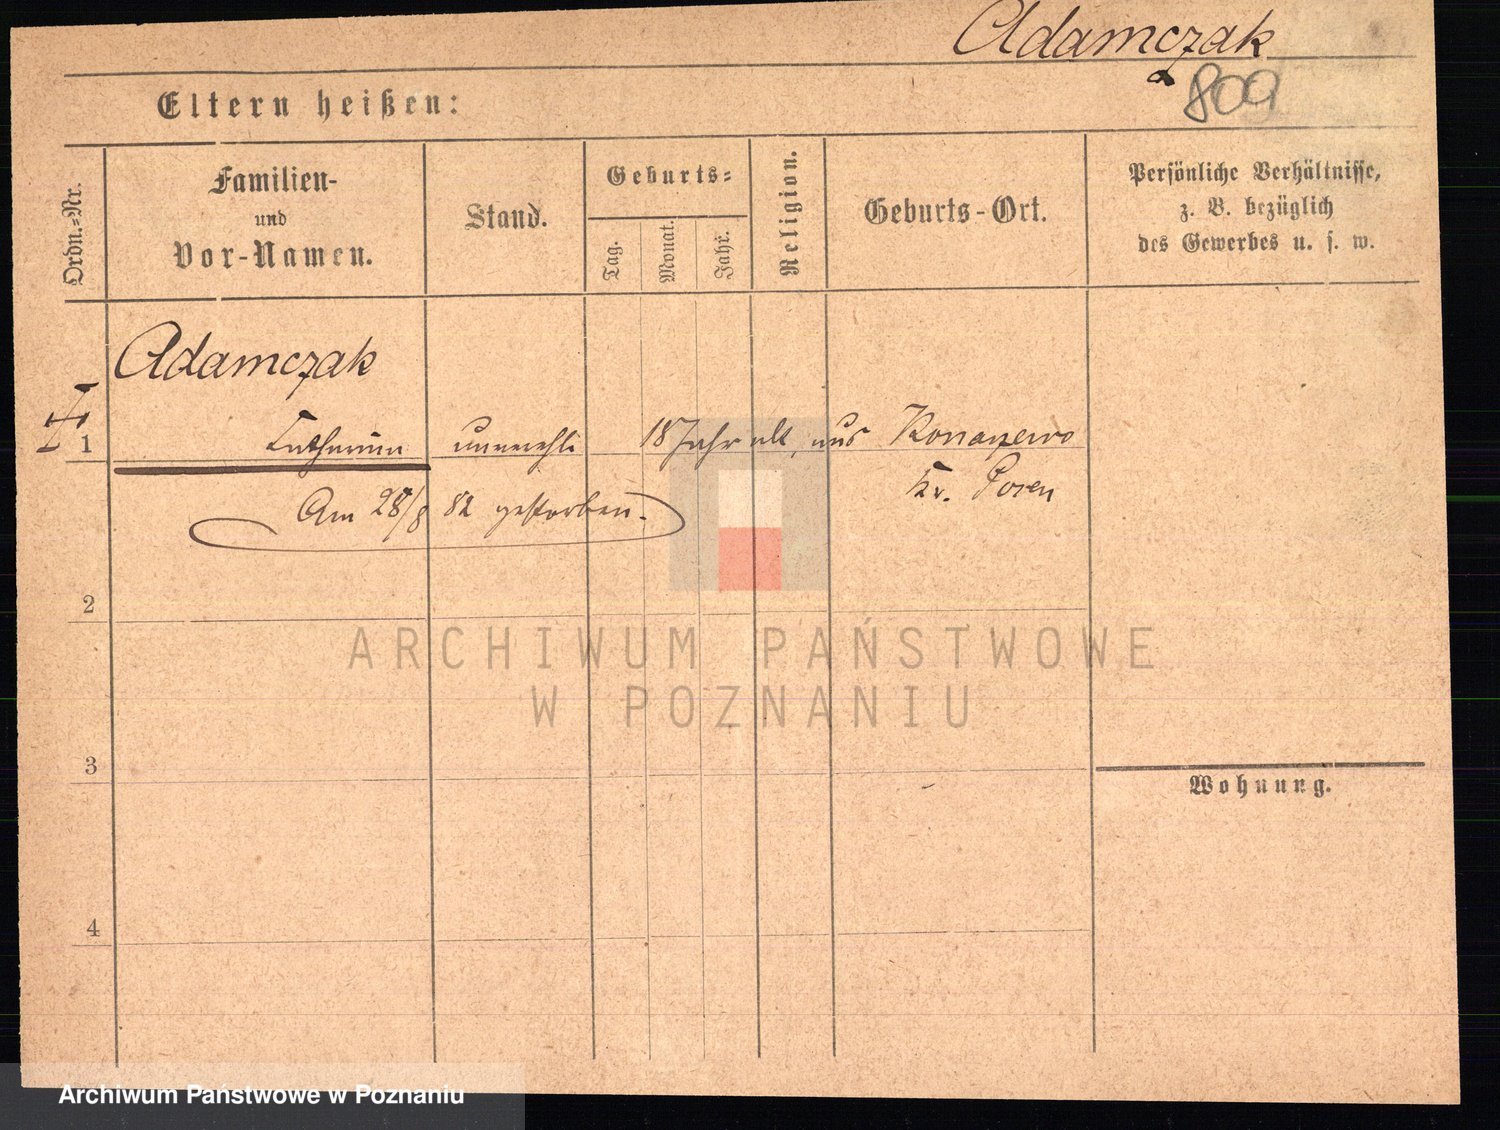 Adamczak
809
Eltern heißen:
Ordn.-Nr.
Familien-
und
Vor-Namen.
Stand.
Geburts-
Tag.
Monat.
Jahr.
Religion.
Geburts-Ort.
Persönliche Verhältnisse,
z. B. bezüglich
des Gewerbes u. s. w.
Adamczak
1 Catharina unverehl. 18 Jahr alt, aus Konarzewo
Kr. Posen
Am 28/8 82 gestorben.
2
ARCHIWUM PAŃSTWOWE
W POZNANIU
3
Wohnung.
4
Archiwum Państwowe w Poznaniu